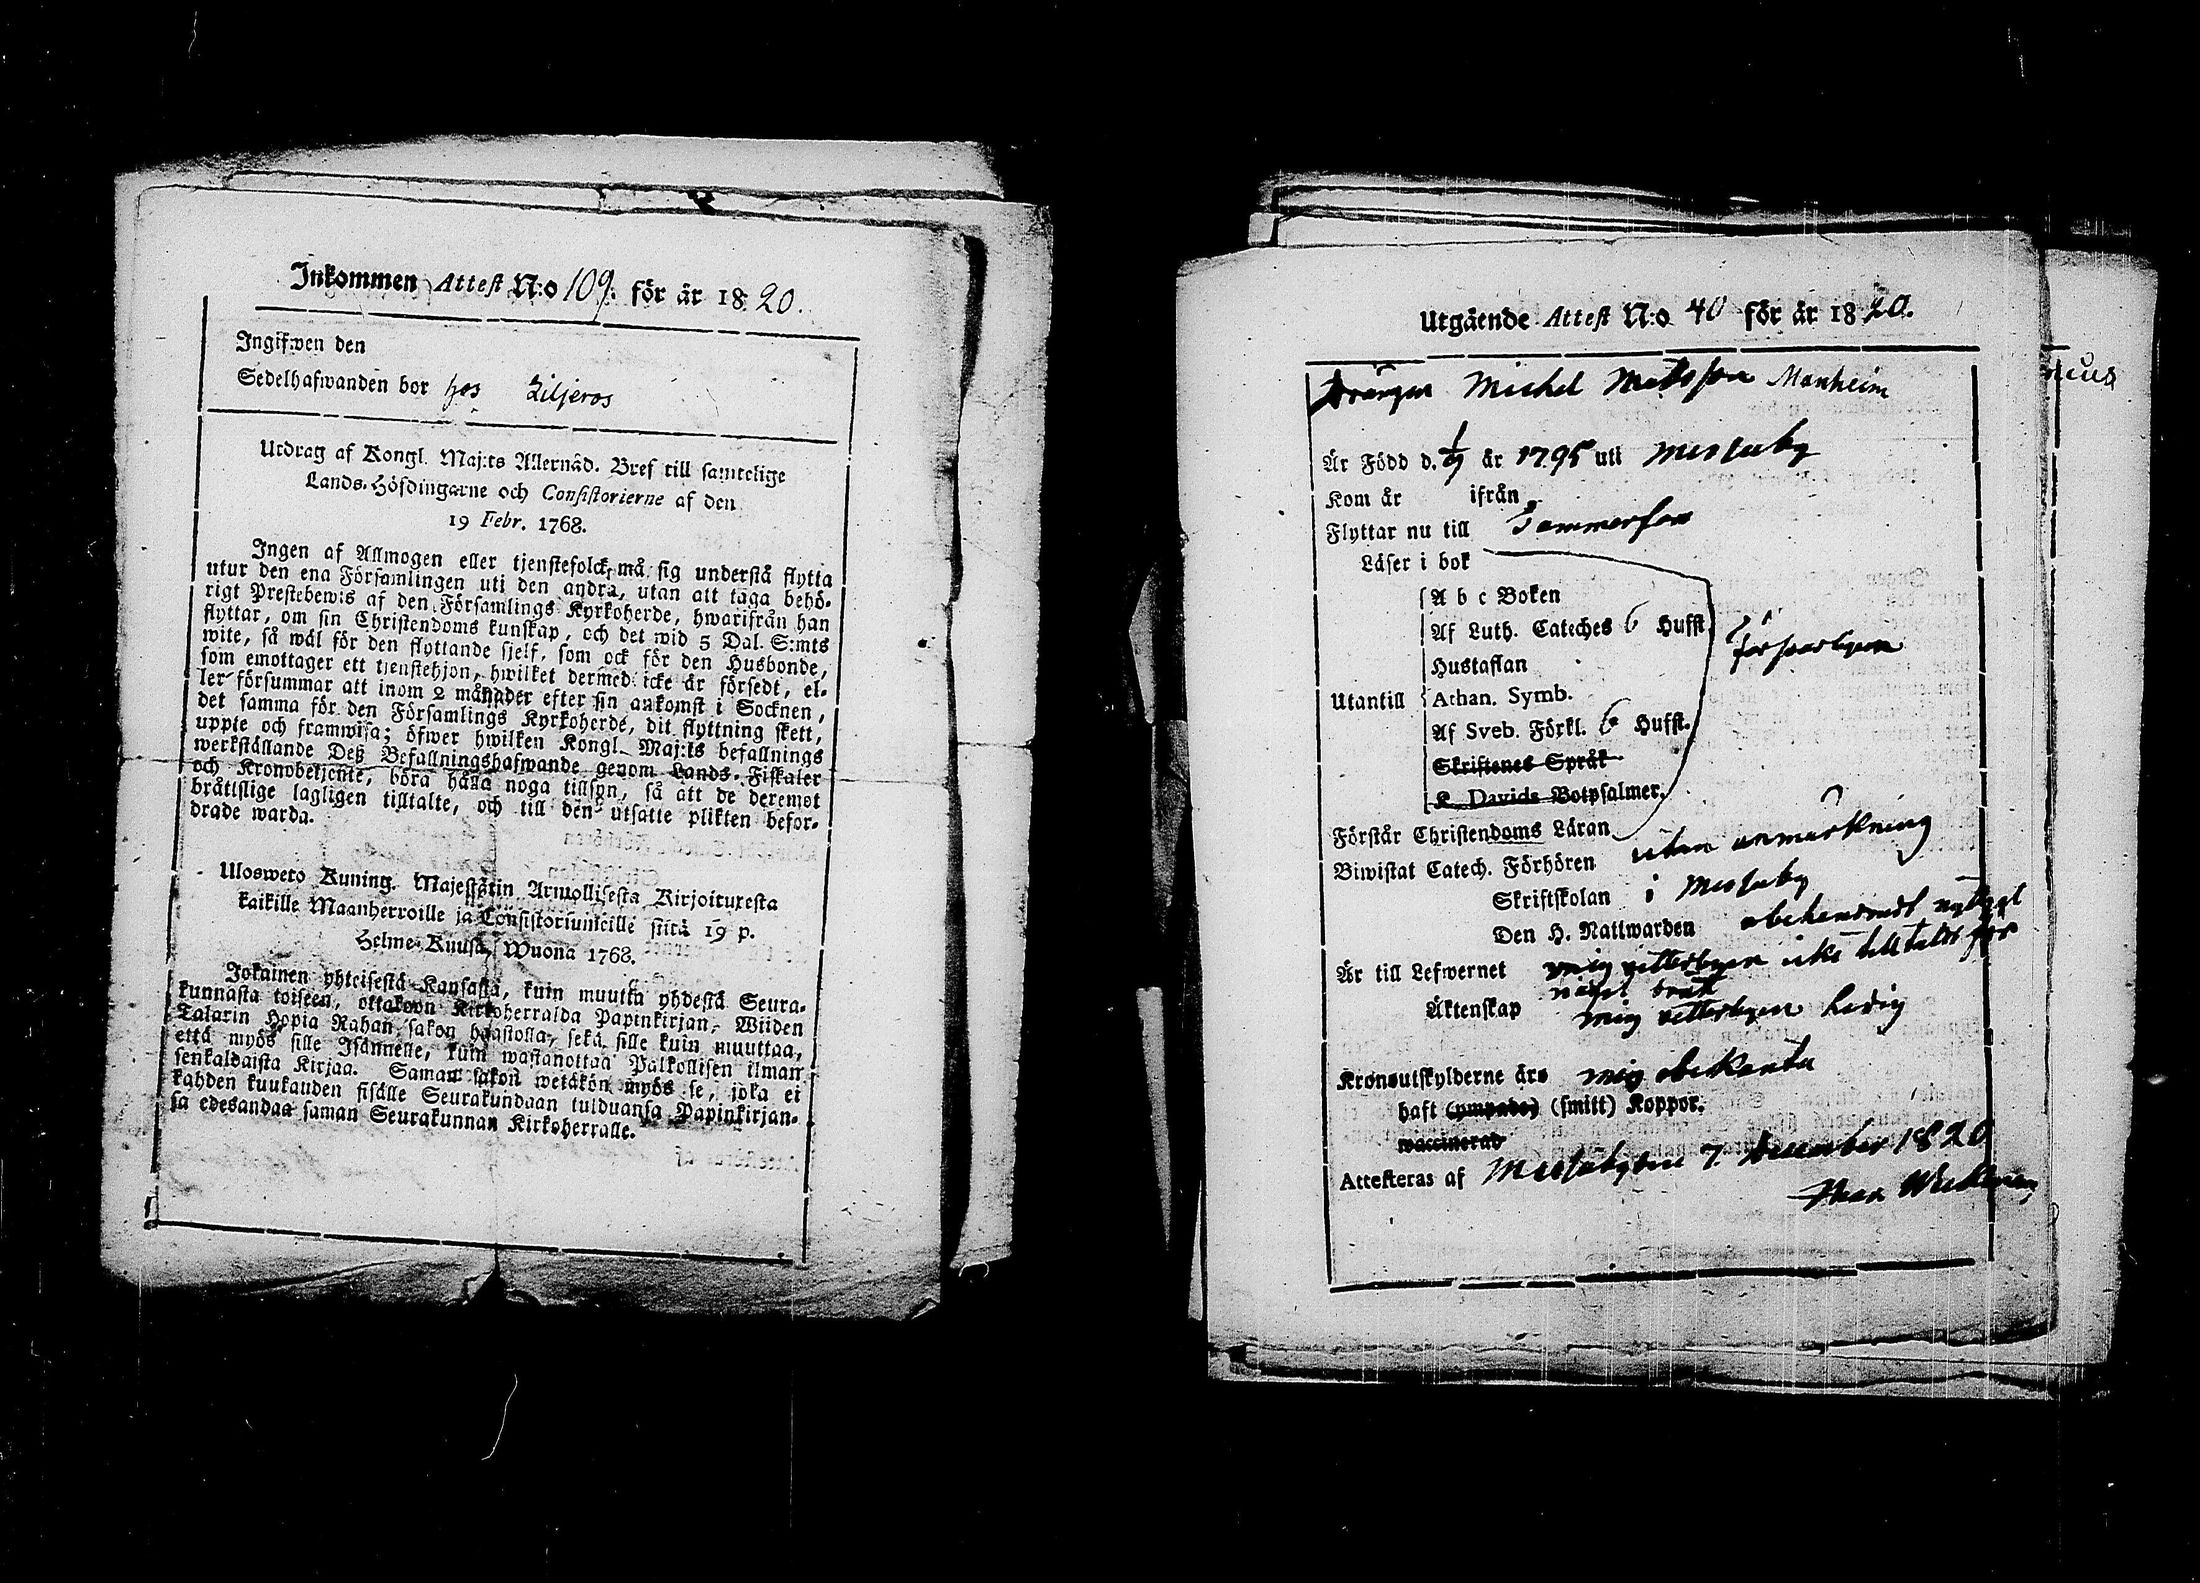 Inkommen Attest N:o 109. för år 1820.
Ingifwen den
Sedelhafwanden bor hos Liljeros
Utdrag af Kongl. Maj:ts Allernåd. Bref till samtelige
Lands-Höfdingarne och Consistorierne af den
19 Febr. 1768.
Ingen af Allmogen eller tjenstefolck må sig understå flytta
utur den ena Församlingen uti den andra, utan att taga behö-
rigt Prestebewis af den Församlings Kyrkoherde, hwarifrån han
flyttar, om sin Christendoms kunskap, och det wid 5 Dal. S:mts
wite, så wäl för den flyttande sjelf, som ock för den Husbonde,
som emottager ett tjenstehjon, hwilket dermed icke är försedt, el-
ler försummar att inom 2 månader efter sin ankomst i Socknen,
det samma för den Församlings Kyrkoherde, dit flyttning skett,
uppte och framwisa; öfwer hwilken Kongl. Maj:ts befallnings
werkställande Deß Befallningshafwande genom Lands-Fiskaler
och Kronobetjente, böra hålla noga tillsyn, så att de deremot
bråttslige lagligen tilltalte, och till den utsatte plikten befor-
drade warda.
Ulosweto Kuning. Majestätin Armollisesta Kirjoituxesta
kaikille Maanherroille ja Consistoriumeille siitä 19 p.
Helme-Kuusa, Wuona 1768.
Jokainen yhteisestä Kansasta, kuin muutta yhdestä Seura-
kunnasta toiseen, ottakoon Kirkoherralda Papinkirjan, Wiiden
Talarin Hopia Rahan sakon haastolla, sekä sille kuin muuttaa,
että myös sille Isännelle, kuin wastanottaa Palkollisen ilman
senkaldaista Kirjaa. Saman sakon wetäkön myös se, joka ei
kahden kuukauden sisälle Seurakundaan tulduansa Papinkirjan-
sa edesandaa saman Seurakunnan Kirkoherralle.
Utgående Attest N:o 40 för år 1820.
Drängen Michel Matsson Manheim
Är Född d. 1/9 år 1795 uti Messuby
Kom år ifrån
Flyttar nu till Tammerfors
Läser i bok
A b c Boken
Af Luth. Cateches 6 Hufst. försvarligen
Hustaflan
Utantill Athan. Symb.
Af Sveb. Förkl. 6 Hufst.
Skriftenes Språk
K. Davids Botpsalmer.
Förstår Christendoms Läran
Biwistat Catech. Förhören utan anmärkning
Skriftskolan i Messuby
Den H. Nattwarden obehindradt nyttjat
Är till Lefwernet mig vetterligen icke tilltalt för
något brott
Äktenskap mig vetterligen ledig
Kronoutskylderne äro mig obekanta
haft (ympade) (smitt) Koppor.
waccinerad
Attesteras af Messuby den 7. December 1820